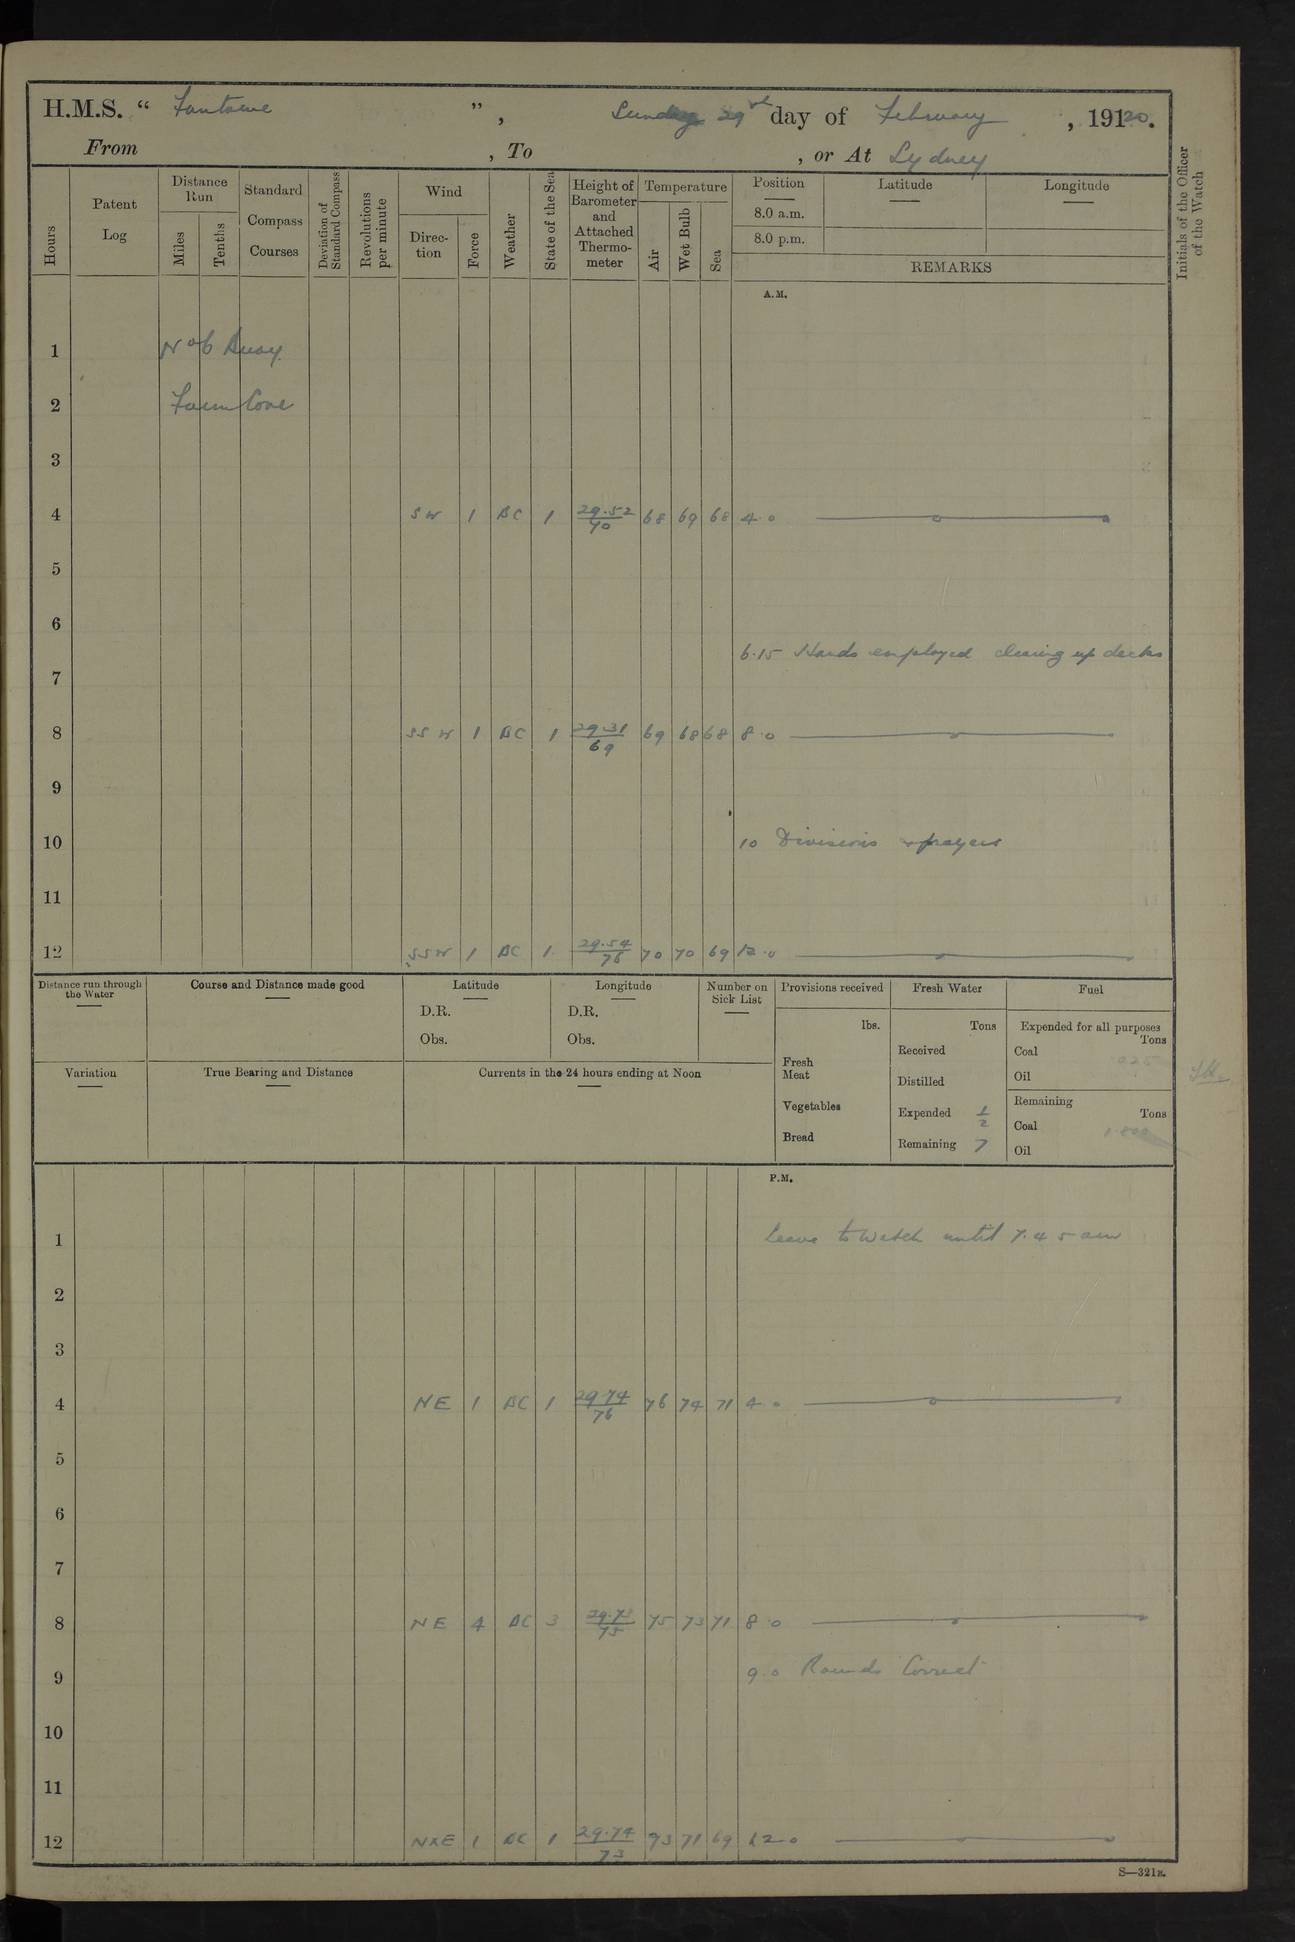 H.M.S. “ Fantome ”, Sunday 29th day of February, 19120.
From , To , or At Sydney
Hours
Patent Log
Distance Run
Miles
Tenths
Standard Compass Courses
Deviation of Standard Compass
Revolutions per minute
Wind
Direction
Force
Weather
State of the Sea
Height of Barometer and Attached Thermometer
Temperature
Air
Wet Bulb
Sea
Position
8.0 a.m.
8.0 p.m.
Latitude
Longitude
REMARKS
Initials of the Officer of the Watch
A.M.
1 No 6 Buoy
2 Farm Cove
3
4 SW 1 BC 1 29.52/70 68 69 68 4.0
5
6
6.15 Hands employed clearing up decks
7
8 SSW 1 BC 1 29.31/69 69 68 68 8.0
9
10 10 Divisions & prayers
11
12 SSW 1 BC 1 29.54/76 70 70 69 12.0
Distance run through the Water
Course and Distance made good
Latitude
D.R.
Obs.
Longitude
D.R.
Obs.
Number on Sick List
Provisions received
lbs.
Fresh Meat
Vegetables
Bread
Fresh Water
Tons
Received
Distilled
Expended 1/2
Remaining 7
Fuel
Expended for all purposes
Tons
Coal .025
Oil
Remaining
Tons
Coal
Oil
Variation
True Bearing and Distance
Currents in the 24 hours ending at Noon
P.M.
1 Leave to Watch until 7.45 am
2
3
4 NE 1 BC 1 29.74/76 76 74 71 4.0
5
6
7
8 NE 4 BC 3 29.73/75 75 73 71 8.0
9 9.0 Rounds Correct
10
11
12 NXE 1 BC 1 29.74/73 73 71 69 12.0
S—321E.